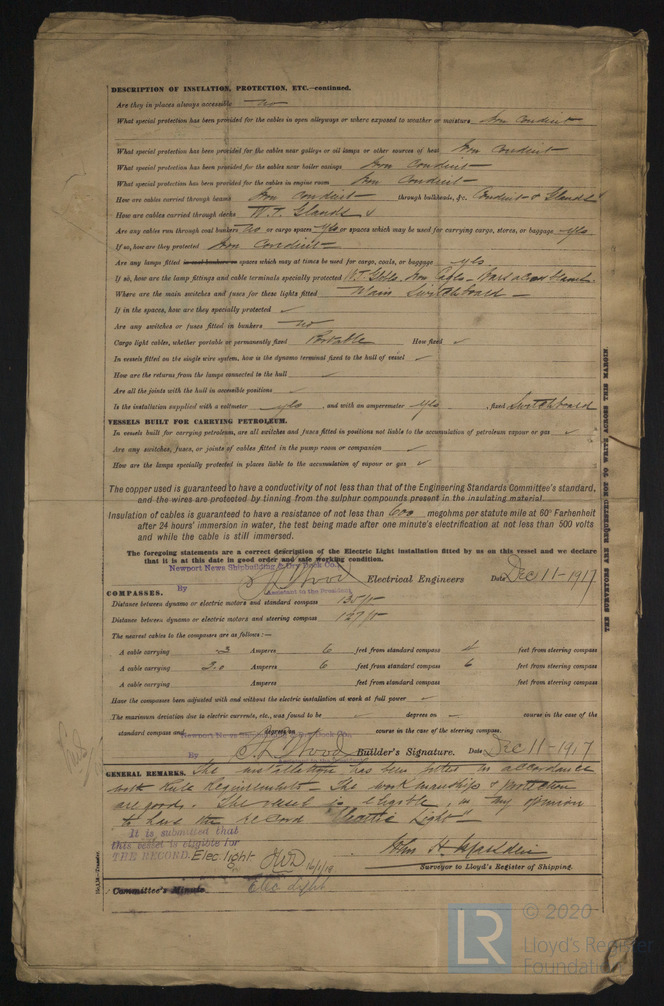 DESCRIPTION OF INSULATION, PROTECTION, ETC.—continued.
Are they in places always accessible no
What special protection has been provided for the cables in open alleyways or where exposed to weather or moisture Iron Conduit
What special protection has been provided for the cables near galleys or oil lamps or other sources of heat Iron Conduit
What special protection has been provided for the cables near boiler casings Iron Conduit
What special protection has been provided for the cables in engine room Iron Conduit
How are cables carried through beams Iron Conduit through bulkheads, &c. Conduit & Glands
How are cables carried through decks W.T. Glands
Are any cables run through coal bunkers no or cargo spaces yes or spaces which may be used for carrying cargo, stores, or baggage yes
If so, how are they protected Iron Conduit
Are any lamps fitted in coal bunkers or spaces which may at times be used for cargo, coals, or baggage yes
If so, how are the lamp fittings and cable terminals specially protected W.T. Globe. Iron
Where are the main switches and fuses for these lights fitted Main Switchboard
If in the spaces, how are they specially protected ✓
Are any switches or fuses fitted in bunkers no
Cargo light cables, whether portable or permanently fixed Portable How fixed ✓
In vessels fitted on the single wire system, how is the dynamo terminal fixed to the hull of vessel ✓
How are the returns from the lamps connected to the hull ✓
Are all the joints with the hull in accessible positions ✓
Is the installation supplied with a voltmeter yes , and with an amperemeter yes , fixed Switchboard
VESSELS BUILT FOR CARRYING PETROLEUM.
In vessels built for carrying petroleum, are all switches and fuses fitted in positions not liable to the accumulation of petroleum vapour or gas ✓
Are any switches, fuses, or joints of cables fitted in the pump room or companion ✓
How are the lamps specially protected in places liable to the accumulation of vapour or gas ✓
The copper used is guaranteed to have a conductivity of not less than that of the Engineering Standards Committee's standard,
and the wires are protected by tinning from the sulphur compounds present in the insulating material.
Insulation of cables is guaranteed to have a resistance of not less than 600 megohms per statute mile at 60° Farhenheit
after 24 hours' immersion in water, the test being made after one minute's electrification at not less than 500 volts
and while the cable is still immersed.
The foregoing statements are a correct description of the Electric Light installation fitted by us on this vessel and we declare
that it is at this date in good order and safe working condition.
Newport News Shipbuilding & Dry Dock Co.
By Wood Electrical Engineers Date Dec 11-1917
Assistant to the President
COMPASSES.
Distance between dynamo or electric motors and standard compass
Distance between dynamo or electric motors and steering compass
The nearest cables to the compasses are as follows:—
A cable carrying 3 Amperes 6 feet from standard compass 4 feet from steering compass
A cable carrying Amperes 6 feet from standard compass 6 feet from steering compass
A cable carrying Amperes feet from standard compass feet from steering compass
Have the compasses been adjusted with and without the electric installation at work at full power ✓
The maximum deviation due to electric currents, etc., was found to be ✓ degrees on ✓ course in the case of the
standard compass and degrees on course in the case of the steering compass.
Newport News Shipbuilding & Dry Dock Co.
By Wood Builder's Signature. Date Dec 11-1917
Assistant to the President
GENERAL REMARKS. The installation has been fitted in accordance
with Rule Requirements. The workmanship & protection
are good. The vessel is eligible, in my opinion
to have the record "Electric Light"
It is submitted that
this vessel is eligible for
THE RECORD. Elec. light
16/1/18
John H.
Surveyor to Lloyd's Register of Shipping.
Committee's Minute Elec Light
THE SURVEYORS ARE REQUESTED NOT TO WRITE ACROSS THIS MARGIN.
© 2020
LR
Lloyd's Register
Foundation